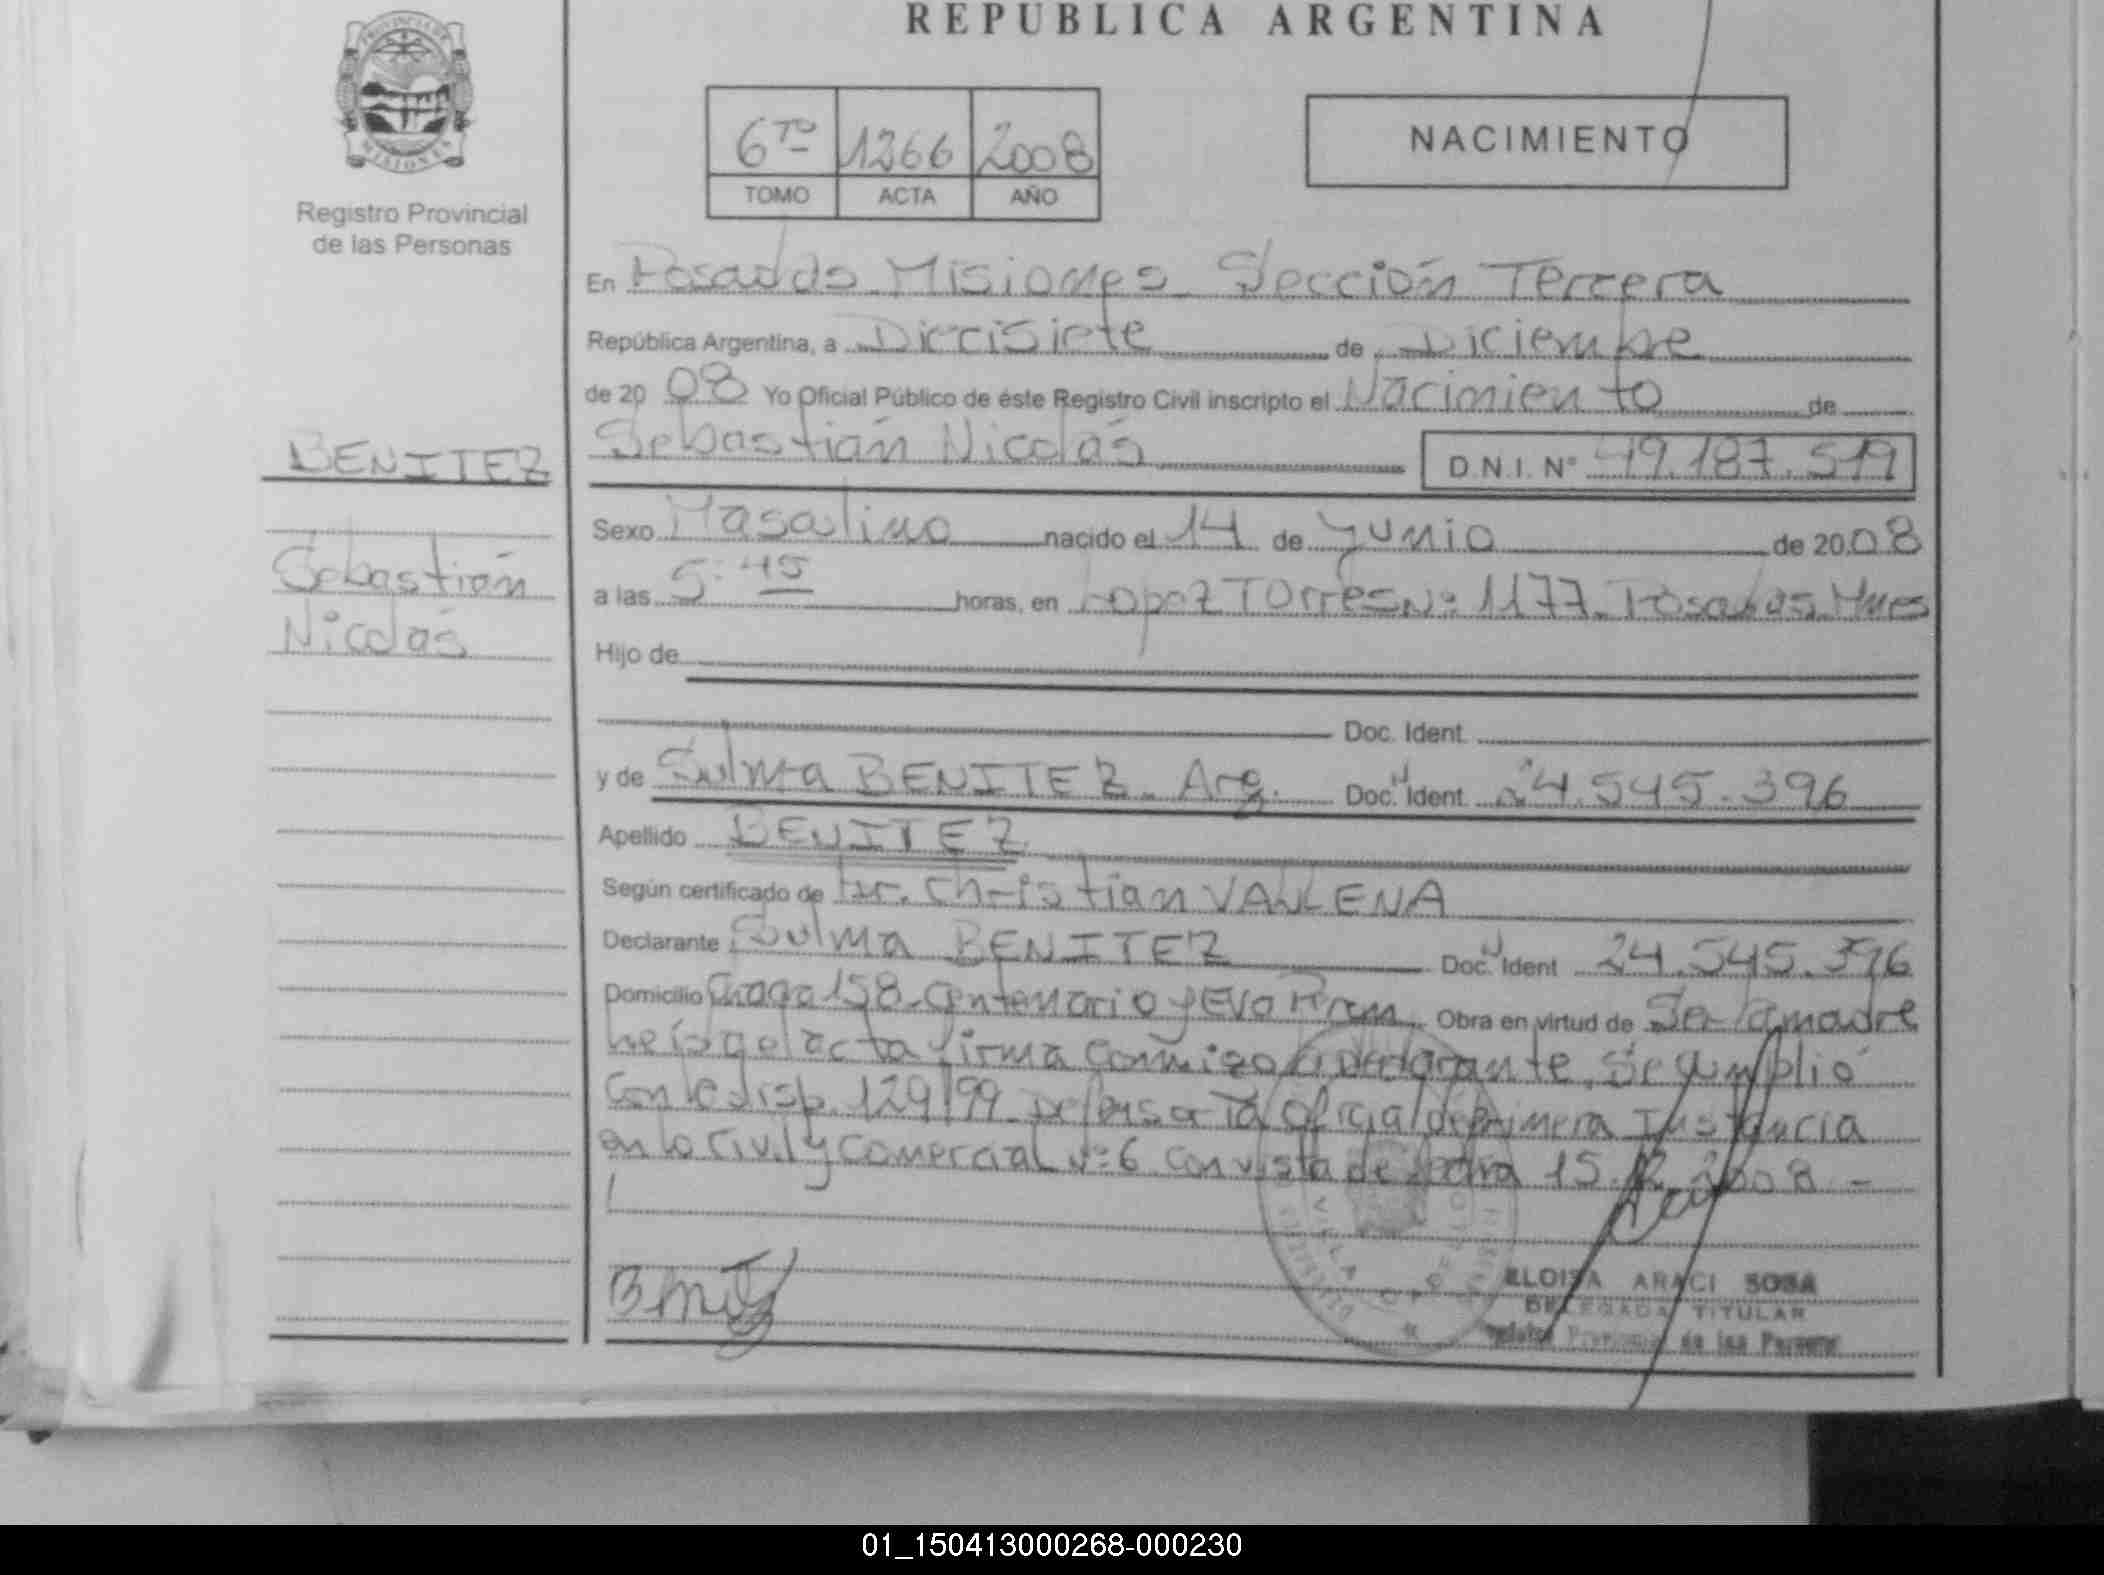 REPUBLICA ARGENTINA
PROVINCIA DE
MISIONES
Registro Provincial
de las Personas
6TO 1266 2008
TOMO ACTA AÑO
NACIMIENTO
En Posadas Misiones Sección Tercera
República Argentina, a Diecisiete de Diciembre
de 20 08 Yo Oficial Público de éste Registro Civil inscripto el Nacimiento de
BENITEZ
Sebastián Nicolás D.N.I. Nº 49.187.519
Sexo Masculino nacido el 14 de Junio de 20 08
Sebastián
Nicolás
a las 5:45 horas, en Lopez Torres Nº 1177 Posadas Mnes
Hijo de
Doc. Ident.
y de Sulma BENITEZ Arg. Doc. Ident. 24.545.396
Apellido BENITEZ
Según certificado de Dr. Christian
Declarante Sulma BENITEZ Doc. Ident 24.545.396
Domicilio 158 Centenario y Obra en virtud de Ser la madre
acta firma conmigo Se cumplió
con disp. 129/99 Defensoria Oficial de primera Instancia
en lo Civil y Comercial Nº 6 con vista de fecha 15.12.2008 -
ELOISA ARACI SOSA
DELEGADA TITULAR
Provincial de las Personas
01_150413000268-000230